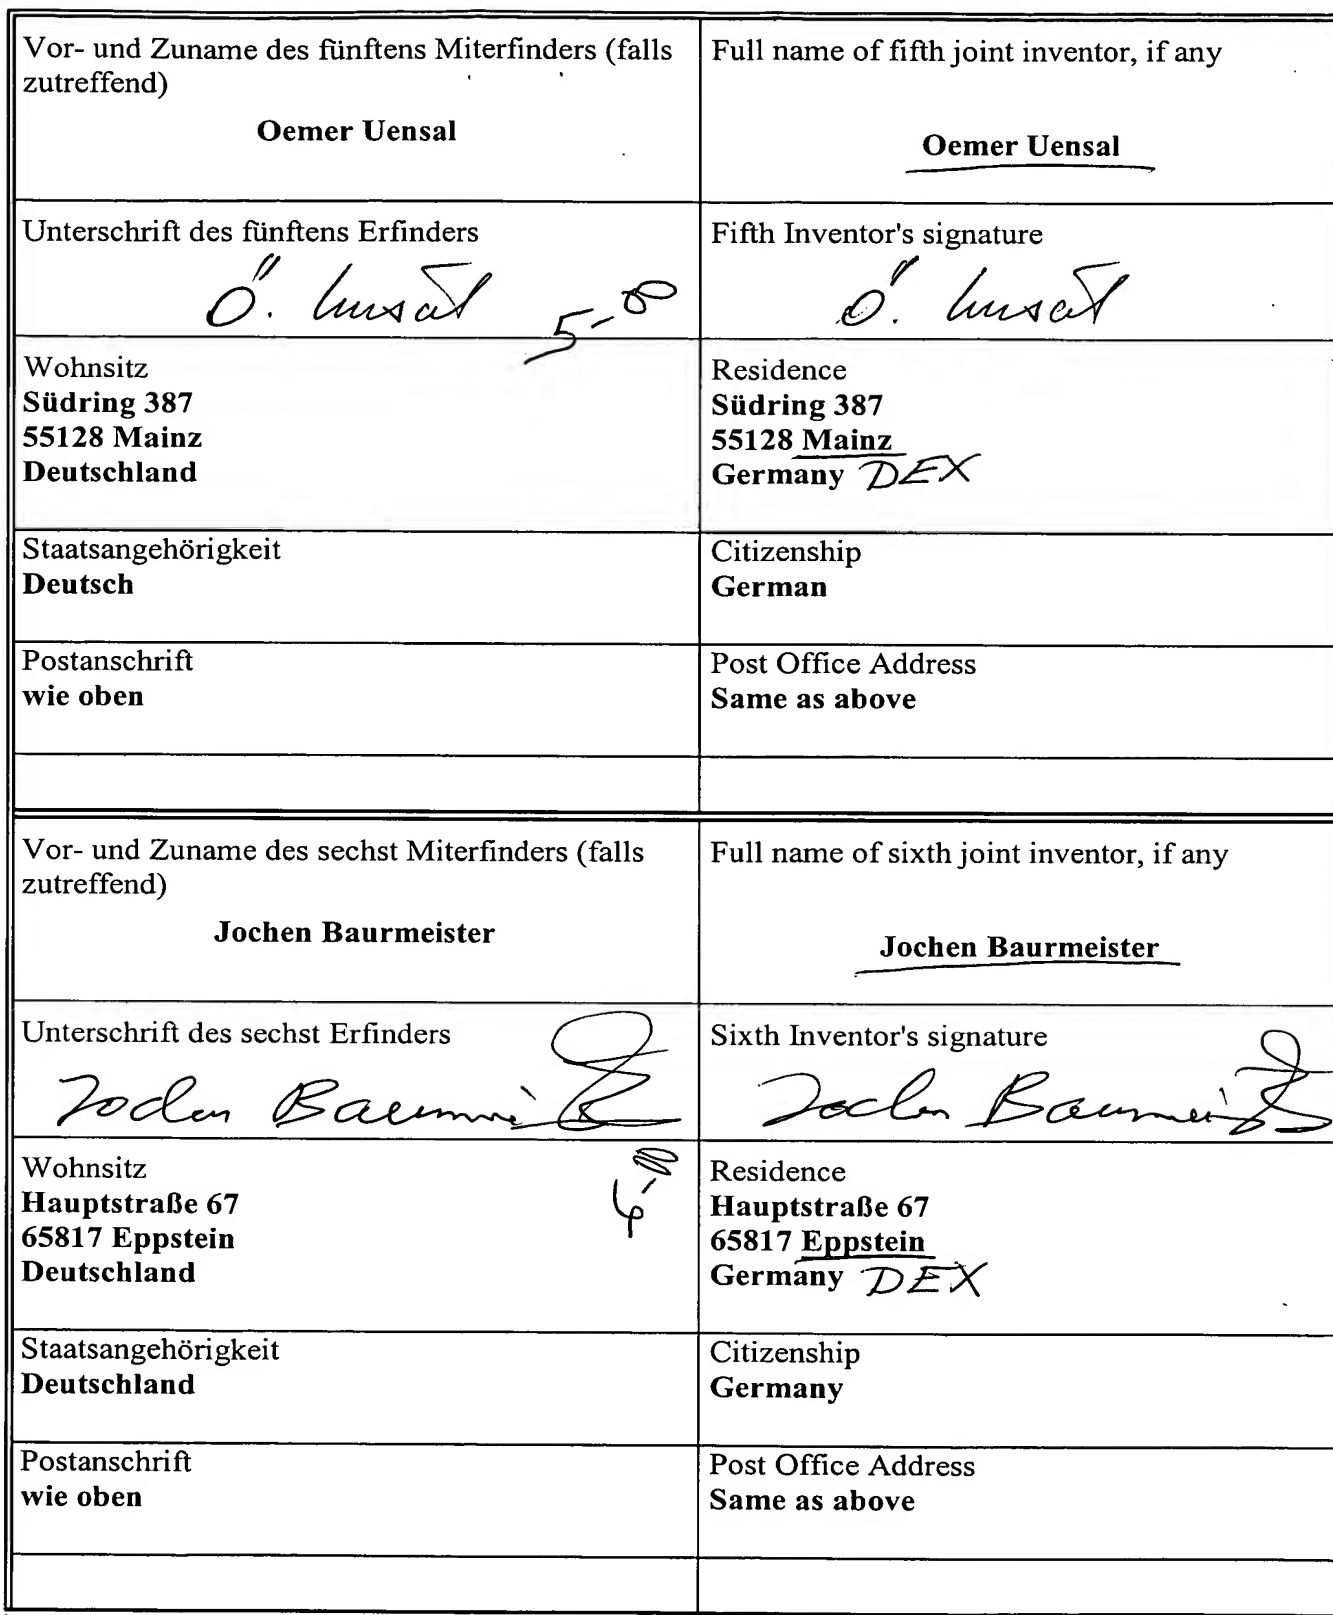 Vor- und Zuname des fünftens Miterfinders (falls
zutreffend)
Oemer Uensal
Full name of fifth joint inventor, if any
Oemer Uensal
Unterschrift des fünftens Erfinders
Fifth Inventor's signature
Wohnsitz
Südring 387
55128 Mainz
Deutschland
Residence
Südring 387
55128 Mainz
Germany DEX
Staatsangehörigkeit
Deutsch
Citizenship
German
Postanschrift
wie oben
Post Office Address
Same as above
Vor- und Zuname des sechst Miterfinders (falls
zutreffend)
Jochen Baurmeister
Full name of sixth joint inventor, if any
Jochen Baurmeister
Unterschrift des sechst Erfinders
Jochen Baurmeister
Sixth Inventor's signature
Jochen Baurmeister
Wohnsitz
Hauptstraße 67
65817 Eppstein
Deutschland
Residence
Hauptstraße 67
65817 Eppstein
Germany DEX
Staatsangehörigkeit
Deutschland
Citizenship
Germany
Postanschrift
wie oben
Post Office Address
Same as above